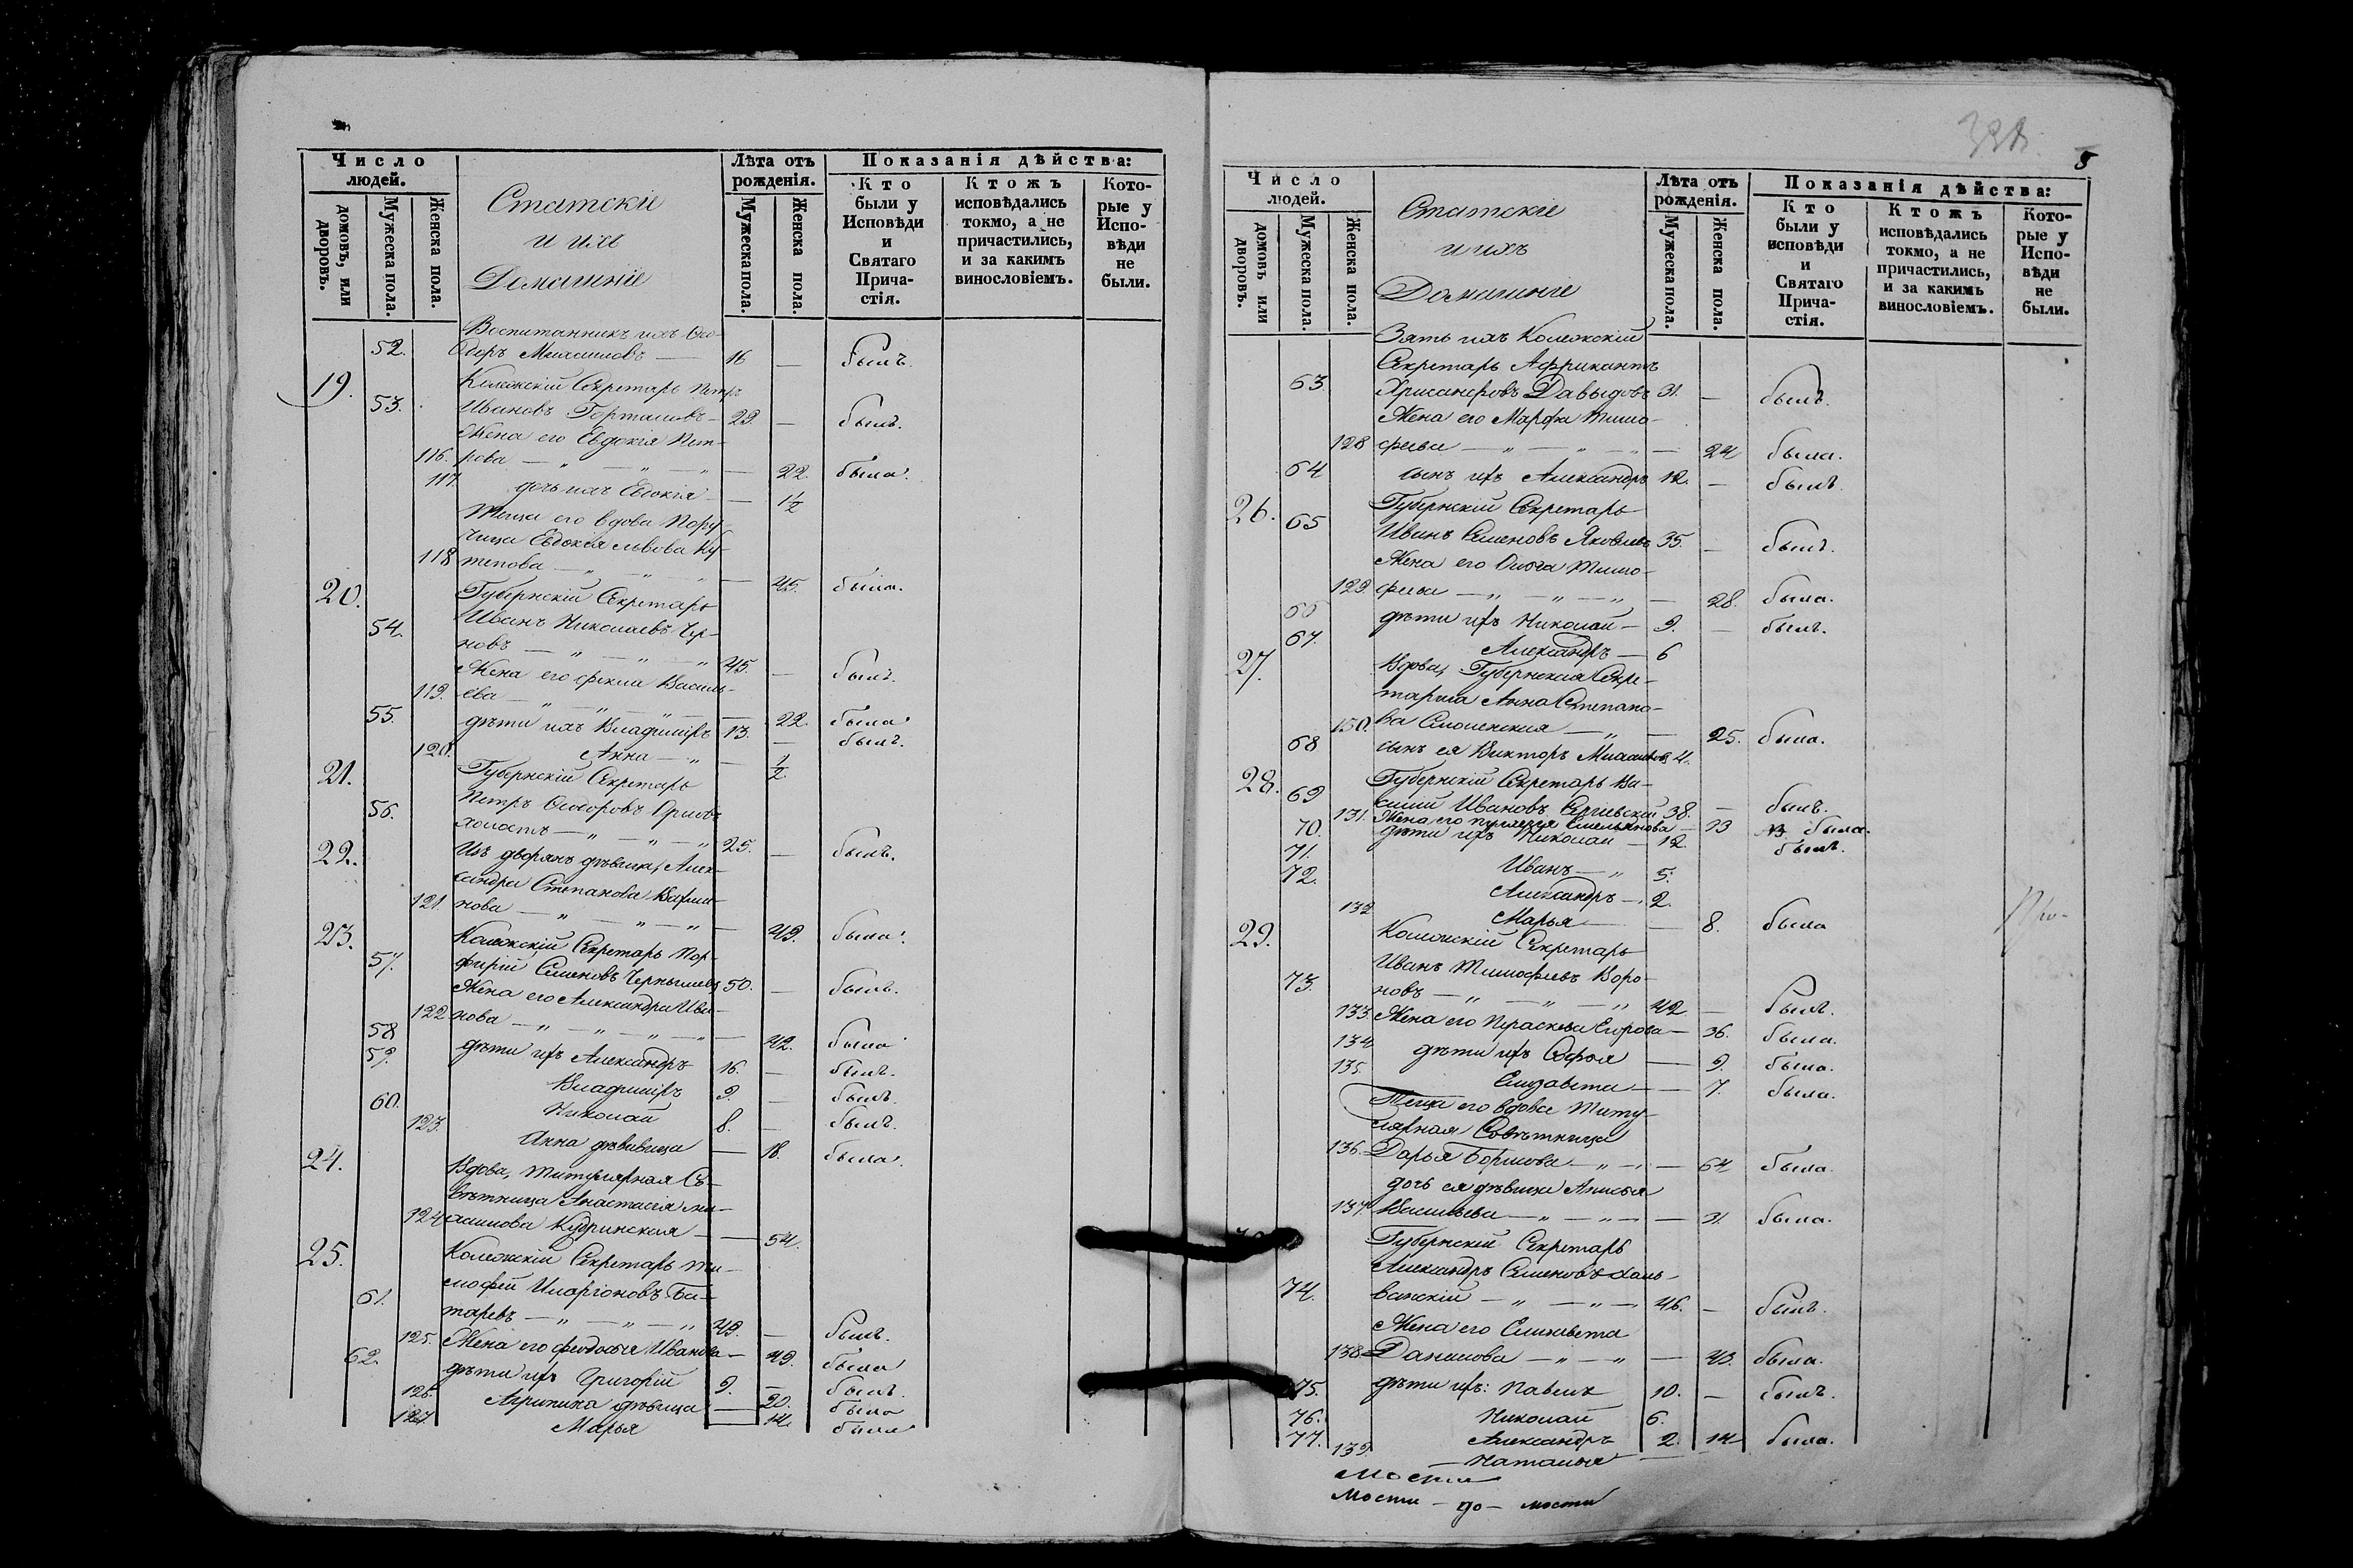 Число людей.
домовъ, или дворовъ.
Мужеска пола.
Женска пола.
Статскіе
и ихъ
Домашніе
Лѣта отъ рожденія.
Мужеска пола.
Женска пола.
Показанія дѣйства:
Кто были у Исповѣди и Святаго Прича-стія.
Ктожъ исповѣдались токмо, а не причастились, и за какимъ винословіемъ.
Кото-рые у Испо-вѣди не были.
Воспитанникъ ихъ Ѳео-
52. доръ 16 — былъ.
19. Колежскій Секретарь Петръ
53. Ивановъ 29. — былъ.
Жена его Евдокія Пет-
116. рова — „ — „ — „ — 22. была.
117. дочь ихъ Евдокія — 1½
Теща его вдова Пору-
чица Евдокія Львова Ку-
118 тепова — „ — „ — 45. была.
20. Губернскій Секретарь
54. Иванъ Николаевъ Чер-
новъ — „ — „ — „ 45. — былъ.
Жена его Василь-
119. ева — „ — „ — „ — 22. была
55. дѣти ихъ Владиміръ 13. — былъ.
120. Анна — „ — ½.
21. Губернскій Секретарь
56. Петръ Ѳеодоровъ Орловъ
холостъ — „ — „ — „ 25. — былъ.
22. Изъ дворянъ дѣвица, Алек-
сандра Степанова
121. нова — „ — „ — „ — 49. была.
23. Колежскій Секретарь Пор-
57. фирій Семеновъ Чернышевъ 50. — былъ.
Жена его Александра Ива-
122 нова — „ — „ — „ — 42. была
58 дѣти ихъ Александръ 16. — былъ.
59. Владиміръ 9. — былъ.
60. Николай 8. — былъ.
123. Анна дѣвица — 18. была.
24. Вдова, Титулярная Со-
вѣтница Анастасія Ма-
124 ксимова Кудринская — 54.
25. Колежскій Секретарь Ти-
мофей Иларіоновъ Ба-
61. таревъ — „ — „ — „ 49. — былъ.
125. Жена его Феодосья Иванова — 49. была
62. дѣти ихъ Григорій 9. — былъ.
126. Агрипина дѣвица — 20. была
127. Марья — 14. была
5
Число людей.
домовъ или дворовъ.
Мужеска пола.
Женска пола.
Статскіе
и ихъ
Домашніе
Лѣта отъ рожденія.
Мужеска пола.
Женска пола.
Показанія дѣйства:
Кто были у исповѣди и Святаго Прича-стія.
Ктожъ исповѣдались токмо, а не причастились, и за какимъ винословіемъ.
Кото-рые у Испо-вѣди не были.
Зять ихъ Колежскій
Секретарь Африканъ
63 Хрисанфовъ Давыдовъ 31. — былъ.
Жена его Марфа Тимо-
128 феева — „ — „ — „ — 24 была.
64 сынъ ихъ Александръ 12. — былъ.
26. Губернскій Секретарь
65 Иванъ Семеновъ Яковлевъ 35. — былъ.
Жена его Ольга Тимо-
129. феева — „ — „ — „ — 28. была.
66 дѣти ихъ Николай — 9. — былъ.
67. Александръ — 6
27. Вдова, Губернская Секре-
тарша Анна Степано-
130. ва Смоленская — „ — 25. была.
68 сынъ ея Викторъ 4.
28. Губернскій Секретарь Ва-
69 силій Ивановъ Сергіевскій 38. — былъ.
131. Жена его Емельянова — 33 была.
70. дѣти ихъ Николай — 12. былъ.
71. Иванъ — „ 5.
72. Александръ — 2.
132 Марья — 8. была
29. Колежскій Секретарь
Иванъ Тимофеевъ Воро-
73. новъ — „ — „ — „ 42 — былъ.
133. Жена его Параскева Егорова — 36. была.
134 дѣти ихъ Софья — 9. была.
135. Елизавета — 7. была.
Теща его вдова Титу-
лярная Совѣтница
136. Дарья Борисова — „ — 64 была.
дочь ея дѣвица Анисья
137. Васильева — „ — „ — 31. была.
Губернскій Секретарь
Александръ Семеновъ Халь-
74. ванскій — „ — „ — 46. — былъ.
Жена его Елизавета
138 Данилова — „ — „ — 43. была.
75. дѣти ихъ: Павелъ 10. — былъ.
76. Николай 6.
77. Александръ 2.
139 Наталья — 14 была.
Мости
Мости — до — мости